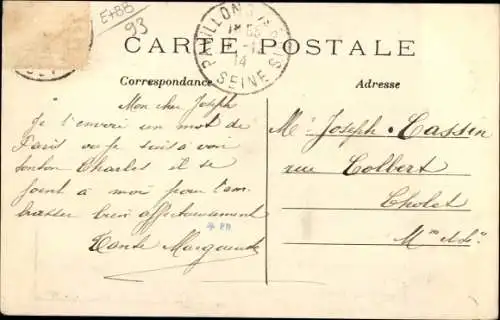 E+BB
93
PAVILLONS S/S BOIS
14
SEINE
CARTE POSTALE
Correspondance
Adresse
Mon cher Joseph
Je t'envoie un mot de
Paris ou je suis à voir
tonton Charles il se
joint à moi pour t'em
brasser bien affectueusement
Tante Marguerite
Mr Joseph Cassin
rue Colbert
Cholet
Mne et Lre